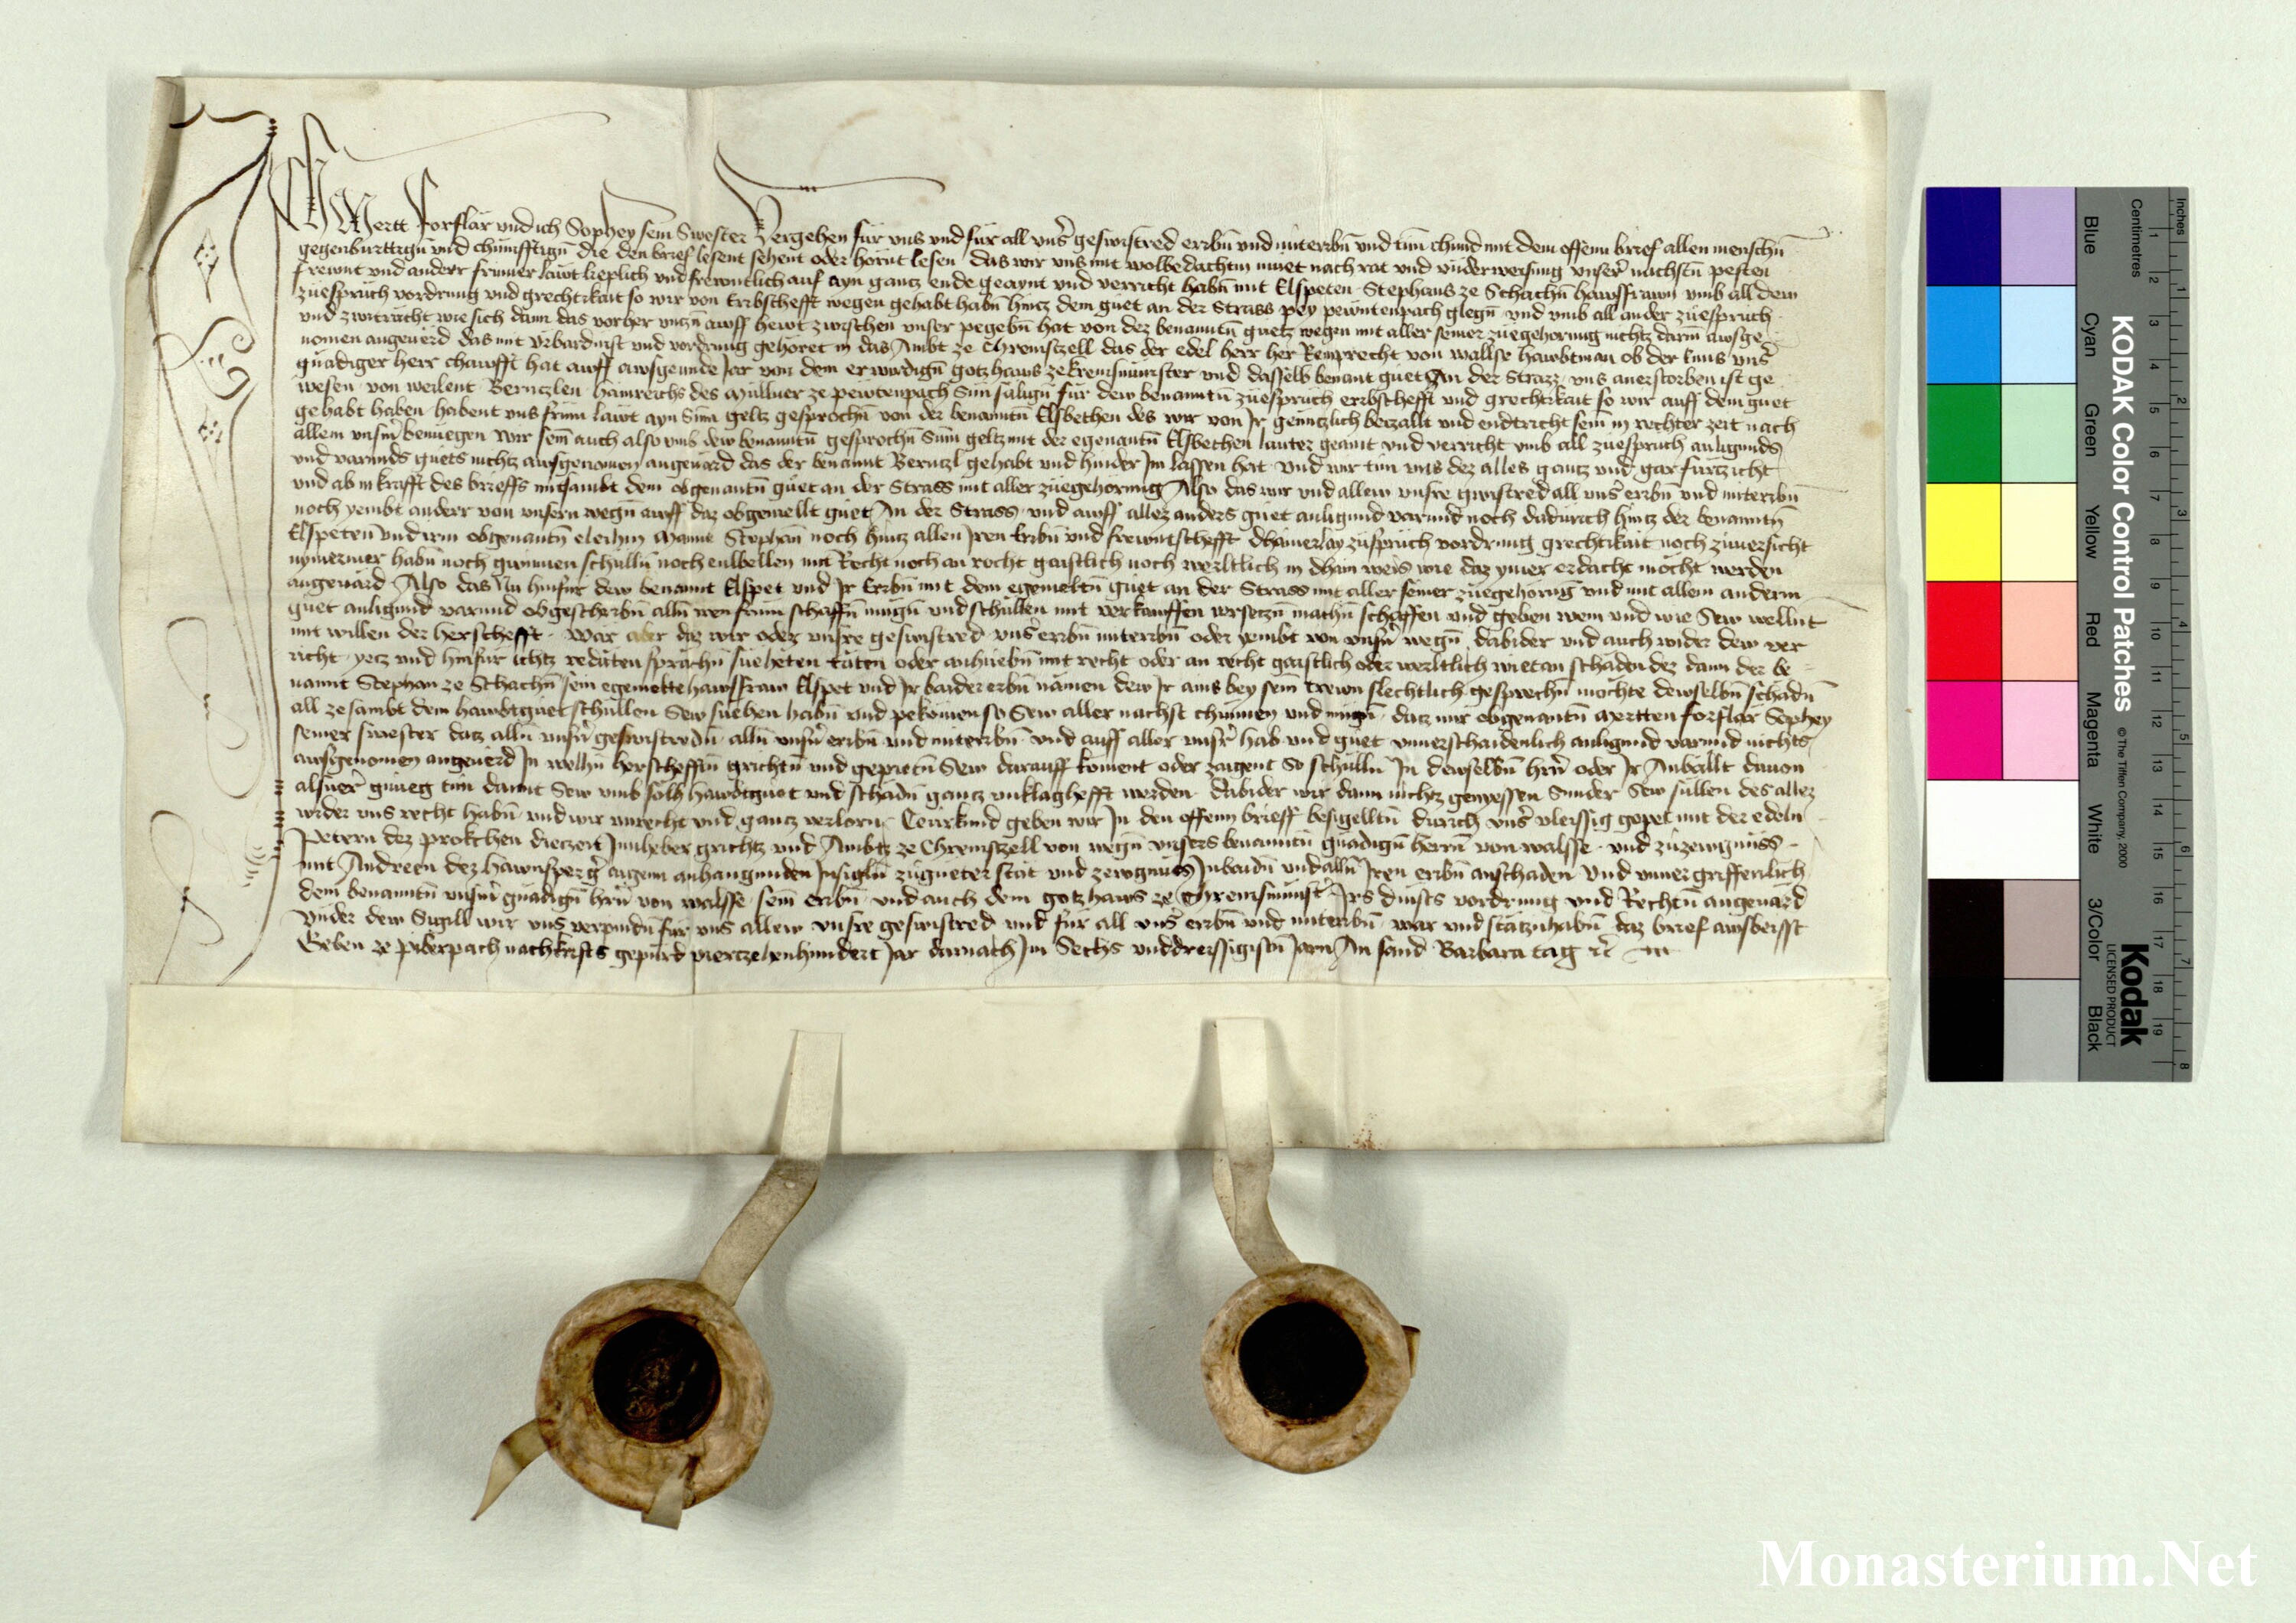 Ich Mertt Forflär vnd ich Sophey sein Swester Vergehen für vns vnd für all vnsr̄ geswistred erbn̄ vnd niterbn̄ vnd tün chund mit dem offenn brief allen menschn̄
gegenburttign̄ vnd chümfftign̄ die den brief lesent sehent oder hörnt lesen das wir vns mit wolbedachtm müet nach rat vnd vnderweisung vnserr̄ nachstn̄ pesten
frewnt vnd anderr frümer läwt lieplich vnd frewntlich auf ayn gantz ende geaynt vnd verricht habn̄ mit Elspeten Stephans ze Schachn̄ hawsfrawn vmb all dew
züesprüch vordrung vnd grechtikait so wir von Erbschefft wegen gehabt habn̄ hintz dem güet an der Strass pey pewntenpach glegn̄ vnd vmb all ander züesprüch
vnd zwitrácht wie sich dann das vorher vntzn̄ awff hewt zwischen vnser pegebn̄ hat von dez benanntn̄ güetz wegen mit aller seiner züegehörung nichtz darin̄ awsge
nomen angeuerd das mit vrbardinst vnd vordrung gehöret in das Ambt ze Chremszell das der edel herr her Remprecht von wallse hawbtman ob der Enns vnsr̄
gnädiger herr chawfft hat auff awsgeunde Jar von dem erwirdign̄ gotzhaws ze kremsmünster vnd dasselb benant güet An der Strazz vns anerstorben ist ge
wesen von weilent Berntzlen hainreichs des Müllner ze pewtenpach Sün sälign̄ für dew benanntn̄ züesprüch erbschefft vnd grechtikait so wir auff dem güet
gehabt haben habent vns früm läwt ayn Sum geltz gesprochn̄ von der benanntn̄ Elsbethen des wir von Jr gentzlich betzallt vnd endtricht sein̄ in rechter zeit nach
allem vnsm̄ benüegen wir sein̄ auch also vmb dew benanntn̄ gesprochn̄ Sum geltz mit der egenantn̄ Elsbethen lautez geaint vnd verricht vmb all züesprüch anligunds
vnd varunds güets nichtz awsgenomen angeuärd das der benannt Berntzl gehabt vnd hinder Jm lassen hat vnd wir tün vns dez alles gantz vnd gar fürtzicht
vnd ab in krafft des brieffs mitsambt dem obgenantn̄ güet an der Strass mit aller züegehörung Also das wir vnd allew vnsre gwistred all vnsr̄ erbn̄ vnd niterbn̄
noch yembt anderr von vnsern wegn̄ awff daz obgemellt güet An der Strass vnd awff allez anders güet anligund varund noch dadurich hintz der benanntn̄
Elspeten̄ vnd irm obgenantn̄ elichm Manne Stephan̄ noch hintz allen Jren Erbn̄ vnd frewntschefft dhainerlay züsprüch vordrung grechtikait noch züuersicht
nymermer habn̄ noch gwinnen schülln̄ noch enwellen mit Recht noch an recht gaistlich noch werltlich in dhain weis wie daz ymer erdacht möcht werden
angeuärd Also das Nu hinfür dew benannt Elspet vnd Jr Erbn̄ mit dem egemeltn̄ güet an der Strass mit aller seiner züegehörüng vnd mit allem anderm
güet anligund varund obgeschribn̄ alln̄ iren früm schaffn̄ mügn̄ vnd schüllen mit verkauffen versetzn̄ machn̄ schaffen vnd geben wem vnd wie Sew wellnt
mit willen der herschefft. Wär aber daz wir oder vnsre geswistred vnsr̄ erbn̄ niterbn̄ oder yembt von vnsn̄ wegn̄ dawider vnd auch wider dew ver
richt yetz vnd hinfür ichtz redäten sprächn̄ süeheten täten oder anhüebn̄ mit recht oder an recht gaistlich oder werltlich wietan schaden dez dann der be
nannt Stephan ze Schachn̄ sein egemelte hawsfraw Elspet vnd Jr baider erbn̄ námen dew Jr ains bey sein̄ trewn slechtlich gesprechn̄ möchte dewselbn̄ schädn̄
all ze sambt dem hawbtguet schüllen Sew süehen habn̄ vnd pekömen so Sew aller nachst chünnen vnd mügn̄ datz mir obgenantn̄ Mertten Forflär Sophey
seiner swester datz alln̄ vnsn̄ geswistredn̄ alln̄ vnsn̄ erbn̄ vnd niterbn̄ vnd auff aller vnsr̄ hab vnd güet vnuerschaidenlich anligund varund nichts
awsgenomen angeuerd Jn welhn̄ herscheffn̄ grichtn̄ vnd gepietn̄ Sew darauff koment oder zaigent So schülln̄ Jn dewselbn̄ hrn̄ oder Jr Anbällt dauon
alsuer̄ gnueg tün damit Sew vmb solh hawbtguet vnd schädn̄ gantz vnklaghefft werden dawider wir dann nichtz genyessen Sunder Sew süllen des allez
wider vns recht habn̄ vnd wir vnrecht vnd gantz verlorn Ze vrkund geben wir Jn den offenn brieff besigelltn̄ durich vnsr̄ vleissig gepet mit der edeln
Petern dez Prokchen dietzeit Jnnheber grichtz vnd Ambtz ze Chremszell von wegn̄ vnsers benanntn̄ gnädign̄ herrn̄ von walsse vnd züzewgnüss
mit Andreen dez hawnsperg̊ aigem anhangunden Jnsigln̄ zügüeter stät vnd zewgnüs Jnbaidn̄ vnd alln̄ Jren erbn̄ anschaden vnd vnuergriffenlich
dem benanntn̄ vnsm̄ gnädign̄ hrn̄ von walsse sein̄ erbn̄ vnd auch dem gotzhaws ze Chremsmünstr̄ Jrs dinsts vordrung vnd Rechtn̄ angeuärd
Vnder dew Sigill wir vns verpindn̄ für vns allew vnsre geswistred vnd für all vnsr̄ erbn̄ vnd niterbn̄ war vnd stätzuhabn̄ daz brief awsweisst
Geben ze Piberpach nach krists gepürd viertzehenhundert Jar darnach Jm Sechs vnddreissigistn̄ Jarn An sand Barbara tag ꝛc̄
KODAK Color Control Patches
© The Tiffen Company, 2000
Kodak
LICENSED PRODUCT
Inches
Centimetres
Blue Cyan Green Yellow Red Magenta White 3/Color Black
1 2 3 4 5 6 7 8
1 2 3 4 5 6 7 8 9 10 11 12 13 14 15 16 17 18 19
Monasterium.Net